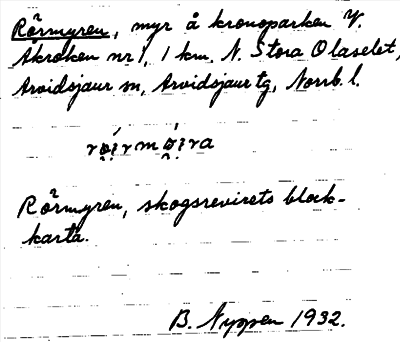 Rörmyren, myr å kronoparken V.
Akroken nr 1, 1 km. N. Stora Olaselet,
Arvidsjaur sn, Arvidsjaur tg, Norrb. l.
Rörmyren, skogsrevirets block-
karta.
B. Nyppen 1932.